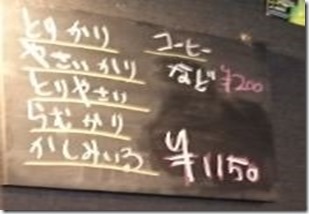 とりかり
やさいかり
とりやさい
らむかり
かしみいる
コーヒー
など ¥200
¥1150